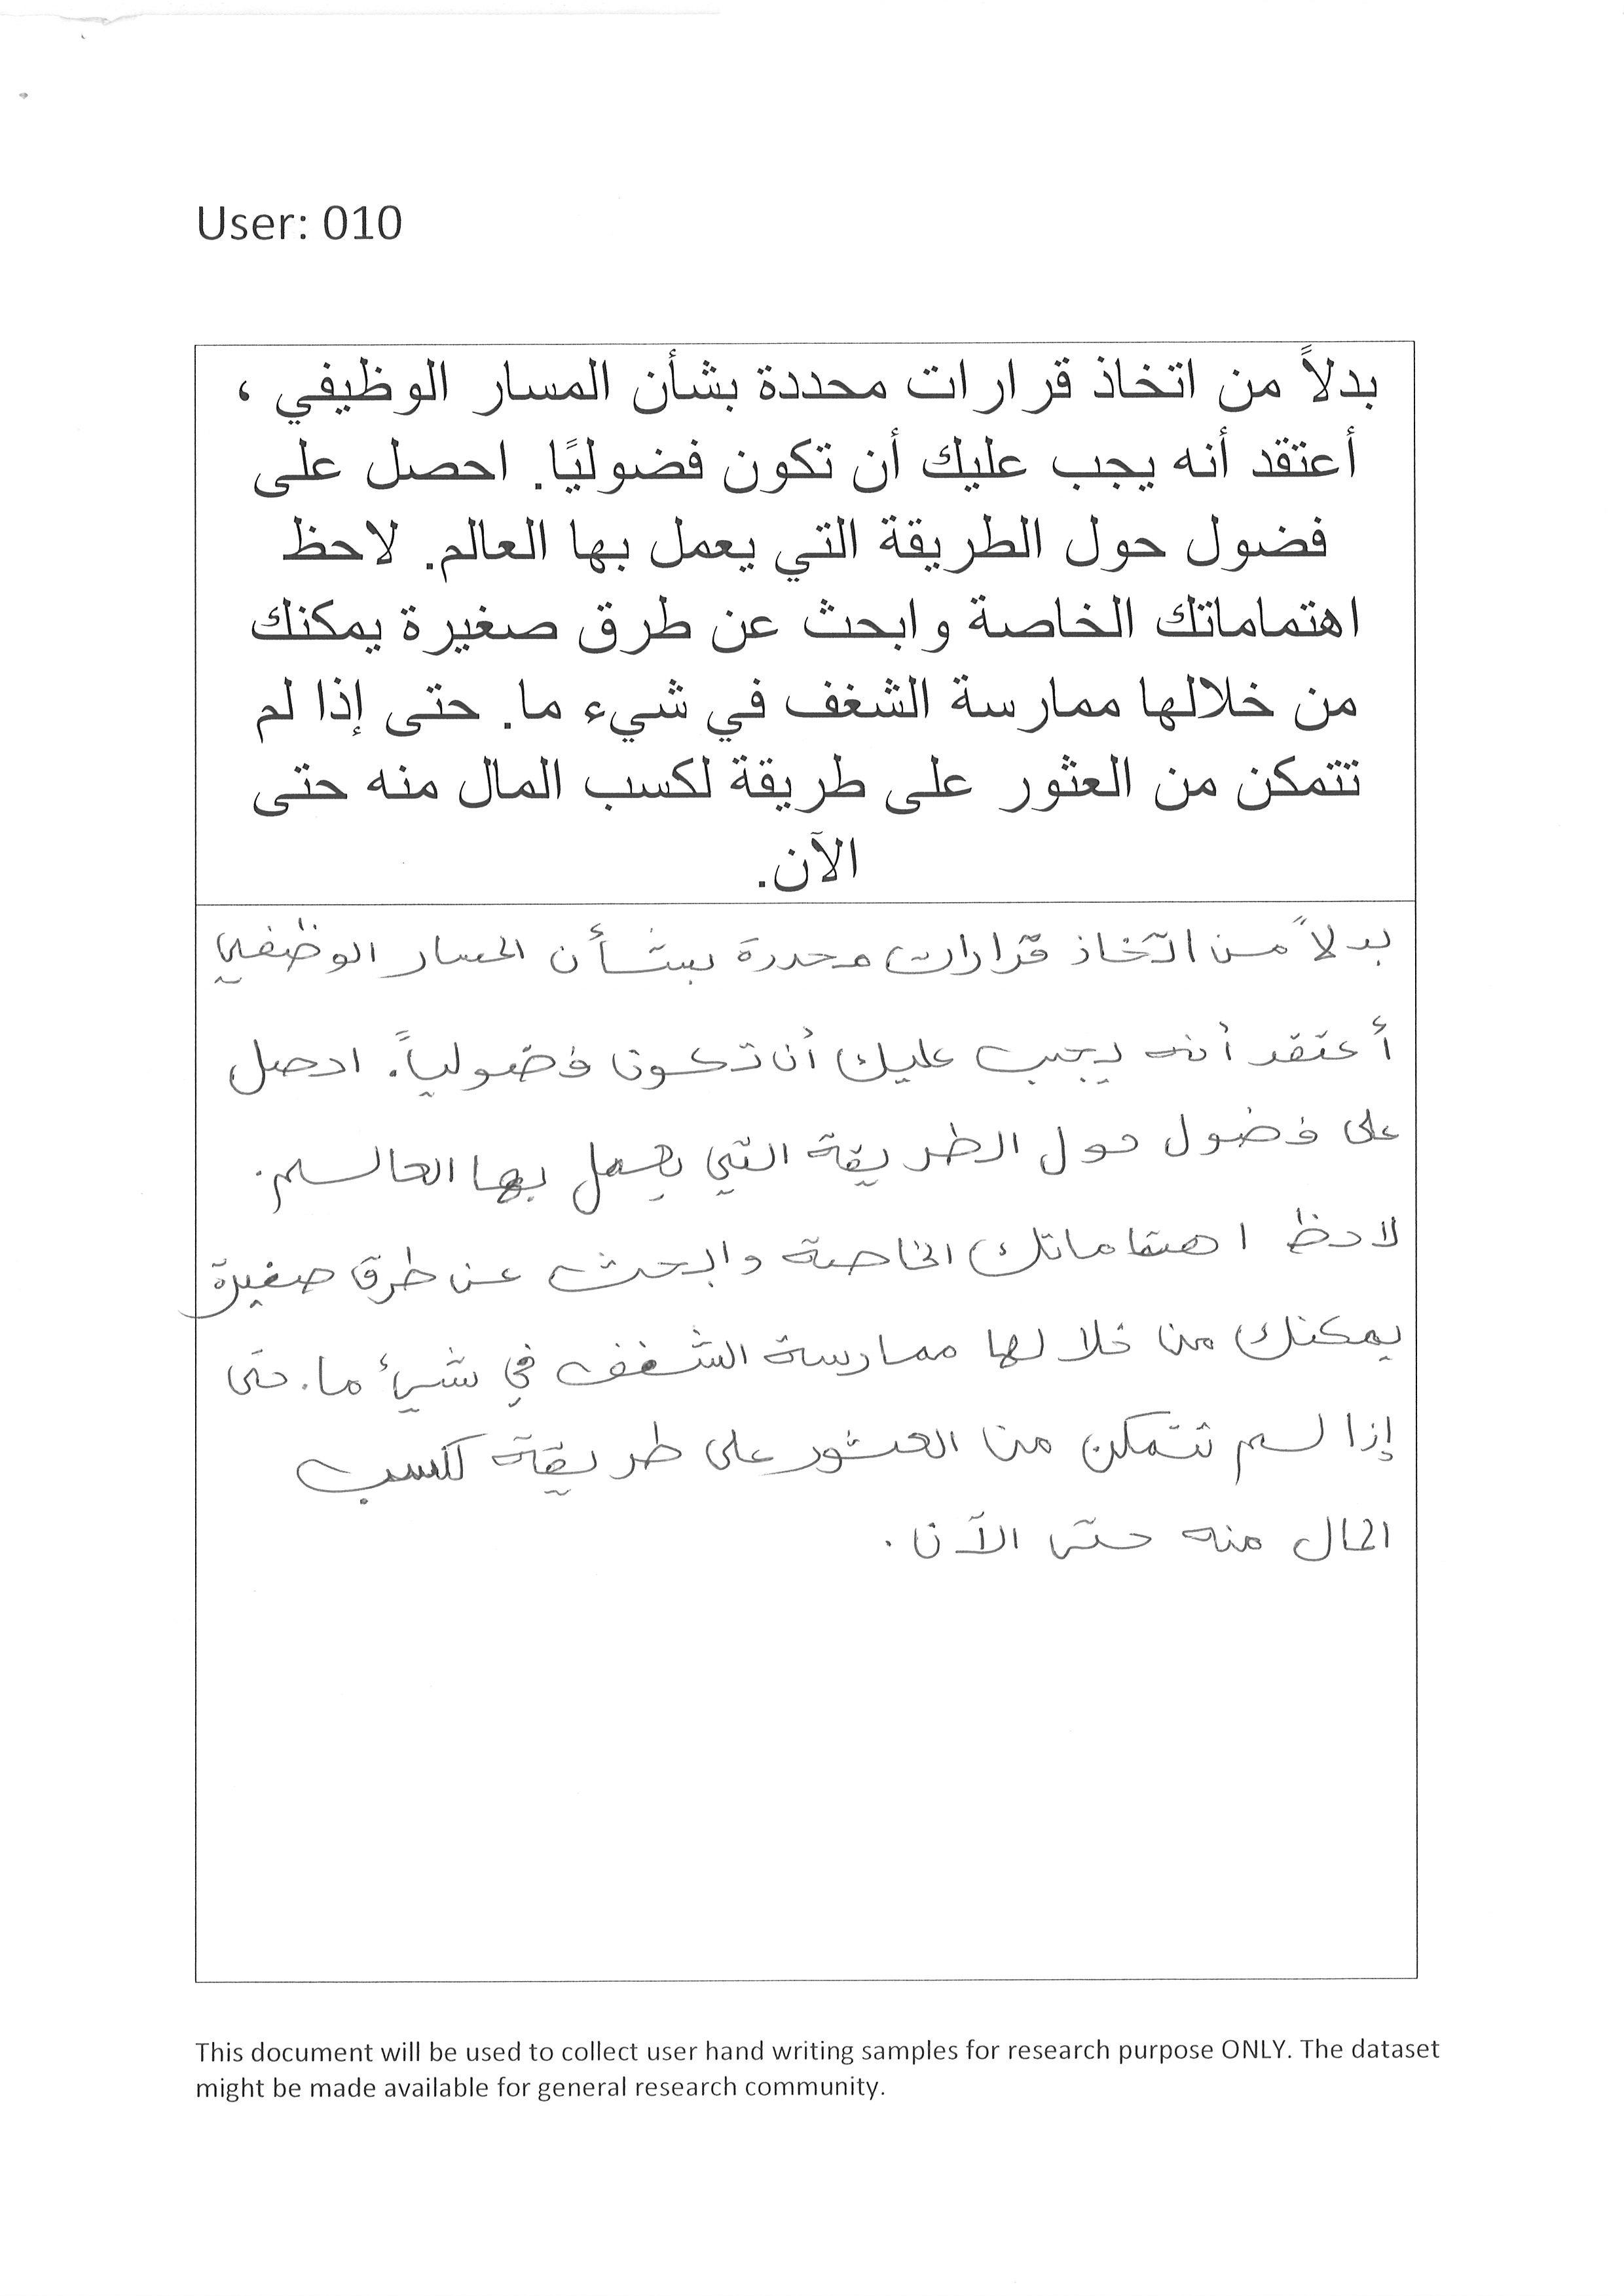 User: 010
بدلاً من اتخاذ قرارات محددة بشأن المسار الوظيفي ،
أعتقد أنه يجب عليك أن تكون فضوليًا. احصل على
فضول حول الطريقة التي يعمل بها العالم. لاحظ
اهتماماتك الخاصة وابحث عن طرق صغيرة يمكنك
من خلالها ممارسة الشغف في شيء ما. حتى إذا لم
تتمكن من العثور على طريقة لكسب المال منه حتى
الآن.
بدلاً من اتخاذ قرارات محددة بشأن المسار الوظيفي
أعتقد أنه يجب عليك أن تكون فضولياً. احصل
على فضول حول الطريقة التي يعمل بها العالم.
لاحظ اهتماماتك الخاصة وابحث عن طرق صغيرة
يمكنك من خلالها ممارسة الشغف في شيئ ما. حتى
إذا لم تتمكن من العثور على طريقة لكسب
المال منه حتى الآن.
This document will be used to collect user hand writing samples for research purpose ONLY. The dataset
might be made available for general research community.